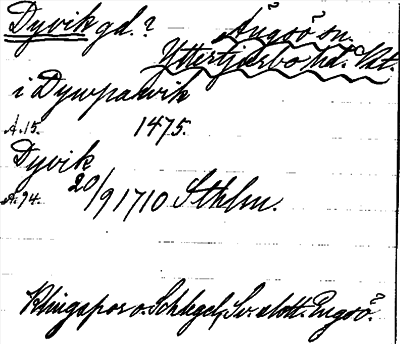 Dyvik gd.? Ängsö sn.
Yttertjurbo hd. Vst.
i Dywpawik
A.15. 1475.
Dyvik
A.94. 20/9 1710 Sthlm.
Klingspor o. Schlegel, Sv. slott. Engsö.